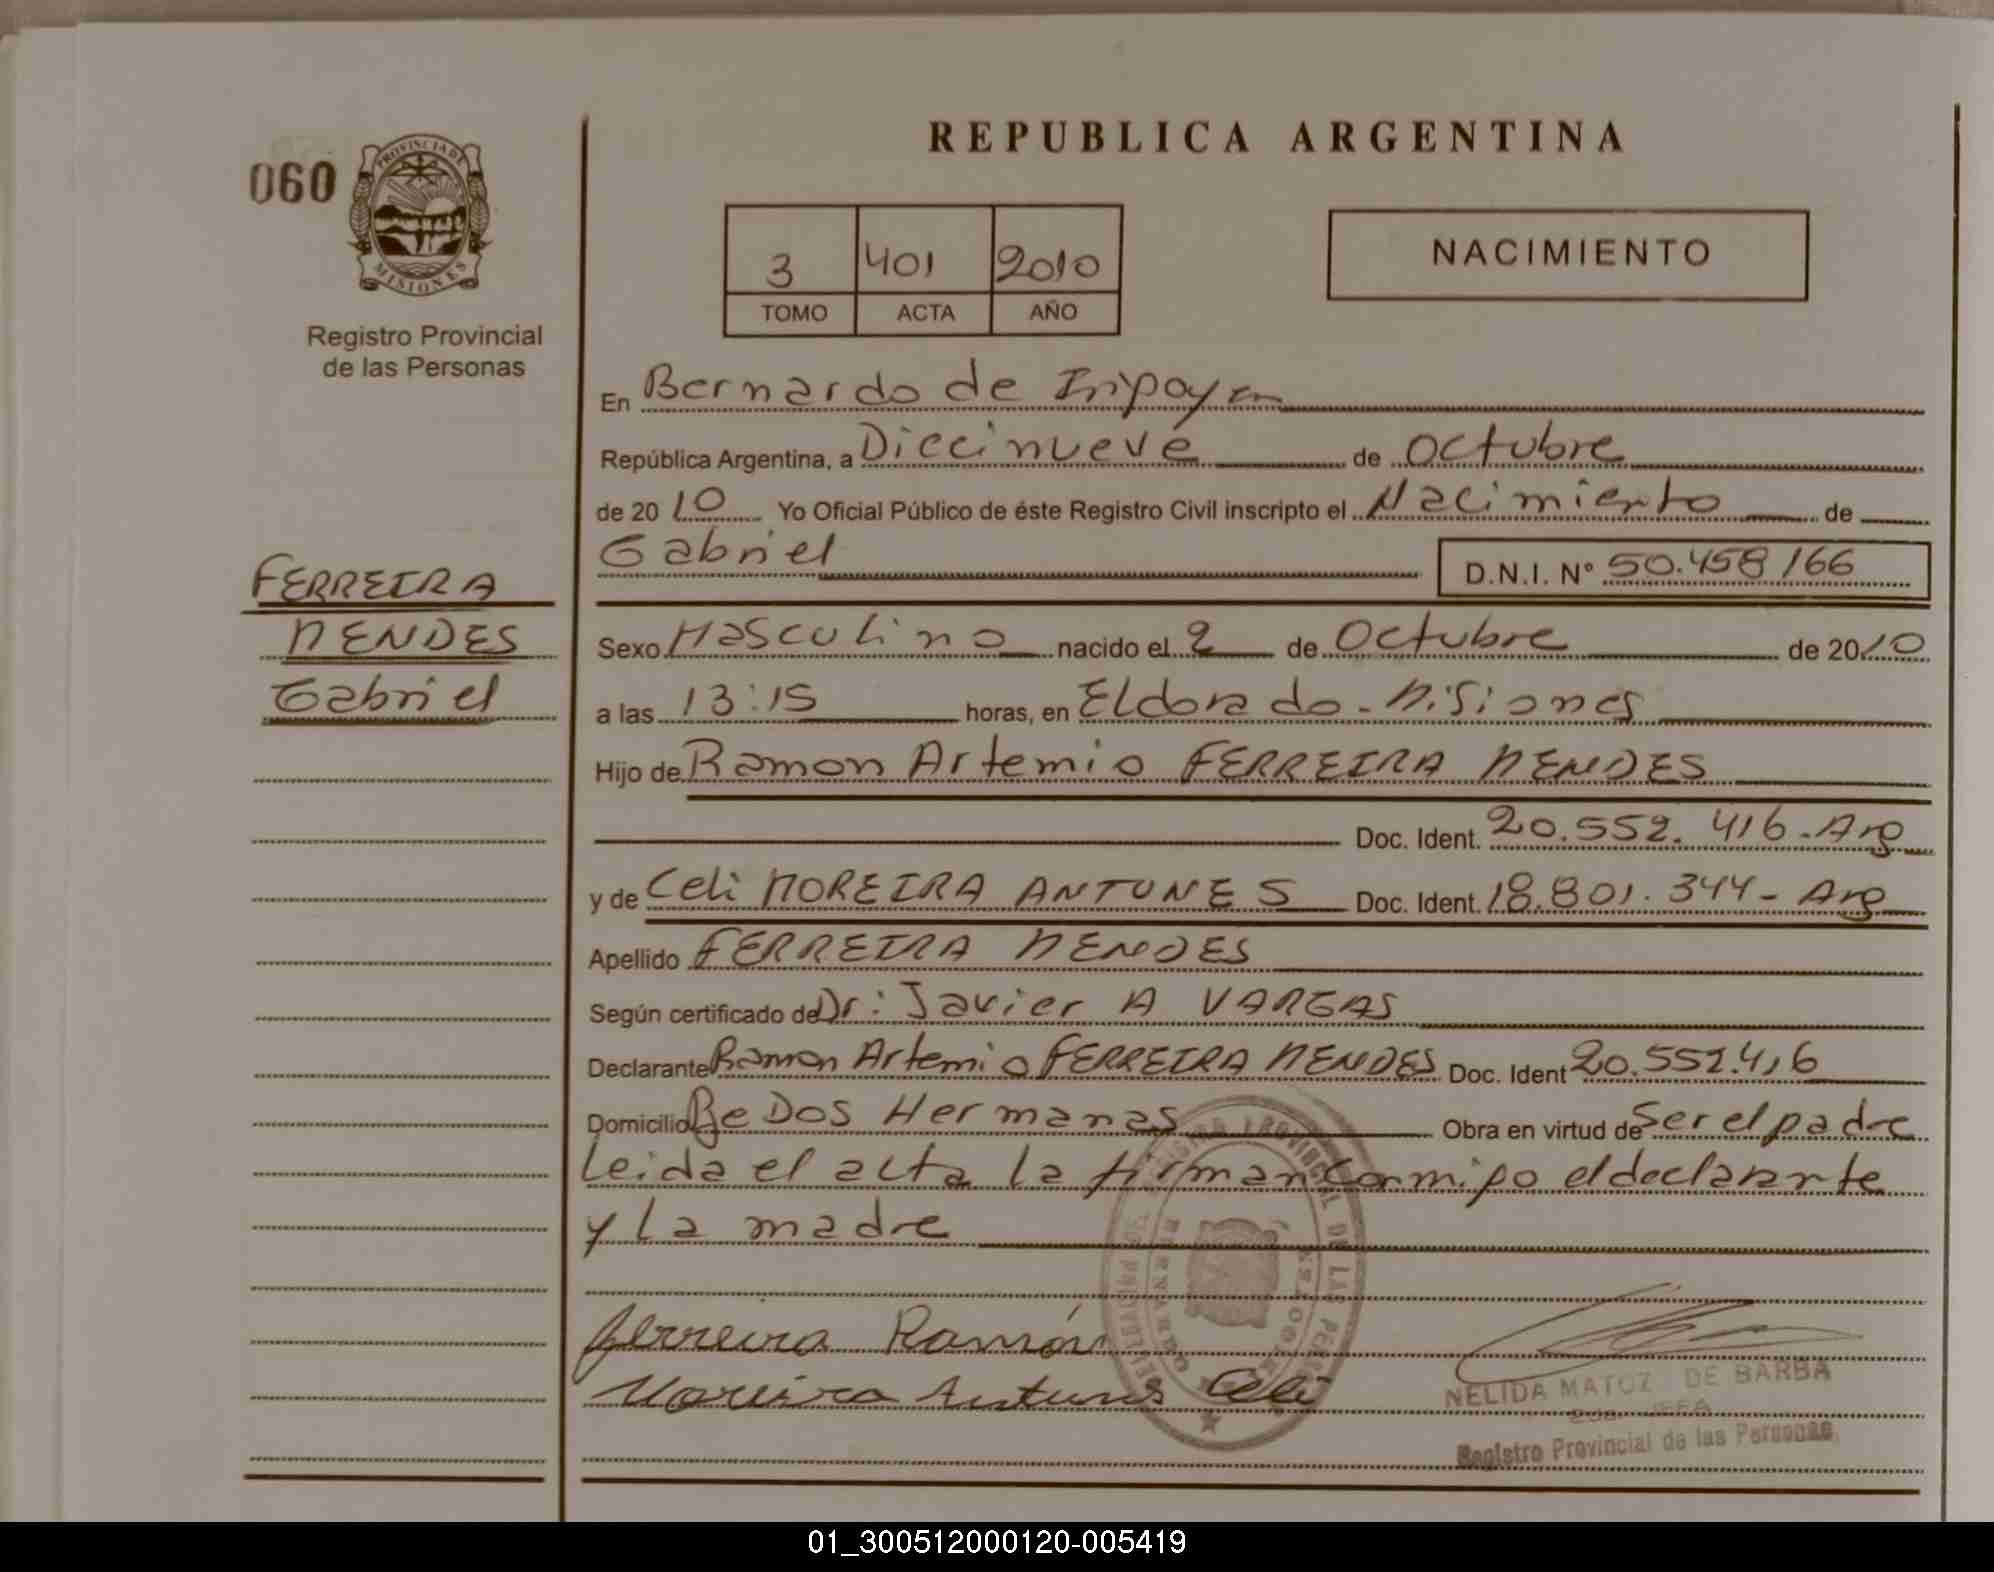 REPUBLICA ARGENTINA
060
PROVINCIA DE
MISIONES
Registro Provincial
de las Personas
3 401 2010
TOMO ACTA AÑO
NACIMIENTO
En Bernardo de Iripoyen
República Argentina, a Diecinueve de Octubre
de 2010 Yo Oficial Público de éste Registro Civil inscripto el Nacimiento de
Gabriel D.N.I. Nº 50.458166
FERREIRA
MENDES
Gabriel
Sexo Masculino nacido el 2 de Octubre de 2010
a las 13:15 horas, en Eldorado - Misiones
Hijo de Ramon Artemio FERREIRA MENDES
Doc. Ident. 20.552.416 - Arg
y de Celi MOREIRA ANTUNES Doc. Ident. 18.801.344 - Arg
Apellido FERREIRA MENDES
Según certificado de Dr: Javier A VARGAS
Declarante Ramon Artemio FERREIRA MENDES Doc. Ident 20.552.416
Domicilio Be Dos Hermanas Obra en virtud de Ser el padre
Leida el acta la firman conmipo el declarante
y La madre
Ferreira Ramón
Moreira Antunes Celi
NELIDA MATOZ DE BARBA
Registro Provincial de las Personas
01_300512000120-005419